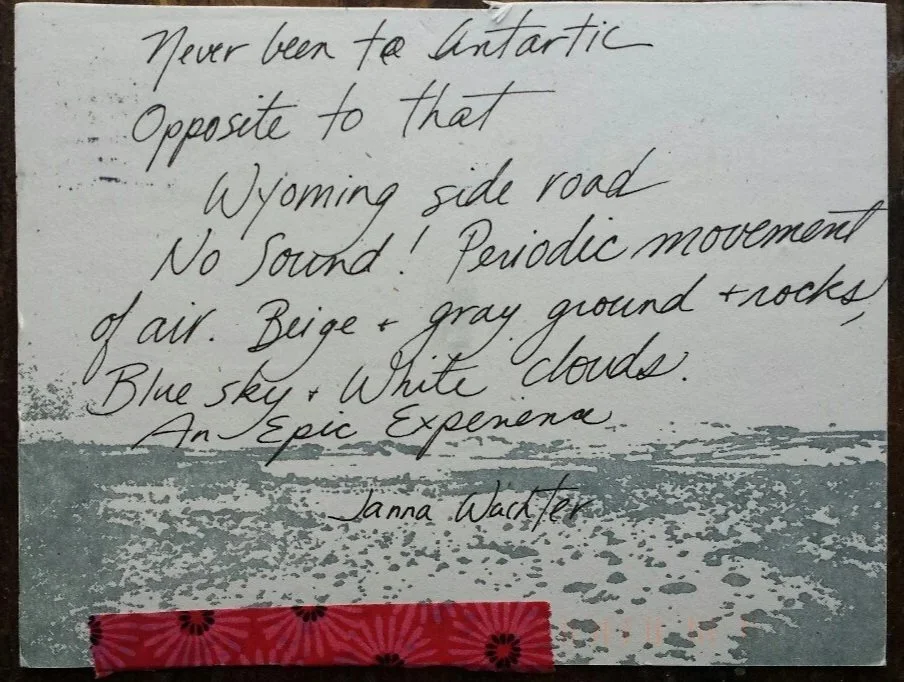 Never been to Antartic
Opposite to that
Wyoming side road
No Sound! Periodic movement
of air. Beige + gray ground + rocks,
Blue sky + White clouds.
An Epic Experience
Janna Wachter